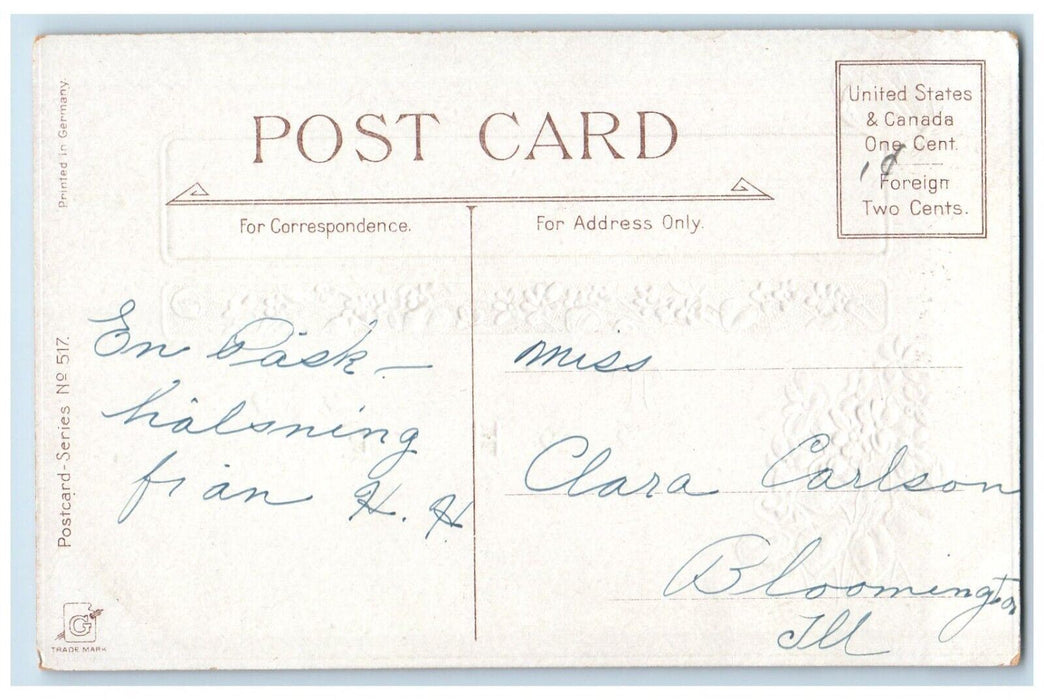 Printed in Germany.
POST CARD
United States
& Canada
One Cent.
1¢
Foreign
Two Cents.
For Correspondence.
For Address Only.
Postcard-Series No 517.
En Påsk-
hälsning
från H. H.
Miss
Clara Carlson
Bloomington
Ill
G
TRADE MARK